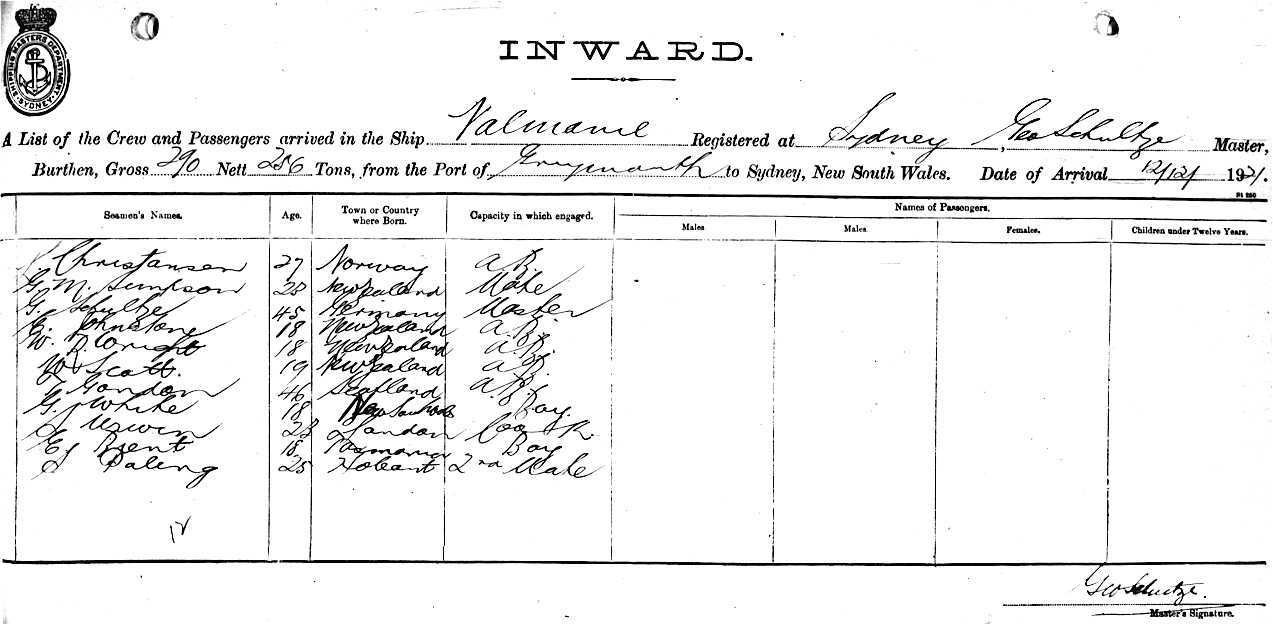 SHIPPING MASTERS DEPARTMENT SYDNEY
INWARD.
A List of the Crew and Passengers arrived in the Ship Valmarie Registered at Sydney, Geo Schultze Master,
Burthen, Gross 290 Nett 256 Tons, from the Port of Greymouth to Sydney, New South Wales. Date of Arrival 12/12/ 1921.
Seamen's Names. Age. Town or Country where Born. Capacity in which engaged. Names of Passengers.
Males Males Females. Children under Twelve Years.
Christansen 27 Norway A.B.
G. M. Simpson 23 New Zealand Mate
G. Schultze 45 Germany Master
Johnstone 18 New Zealand A.B.
W. Wright 18 New Zealand A.B.
W Scott. 19 New Zealand A.B.
Gordon 46 Scotland A.B.
G. White 18 New South Wales Boy.
Urwin 23 London Cook.
E. Brent 18 Tasmania Boy
Paling 25 Hobart 2nd Mate
12
Geo Schultze.
Master's Signature.